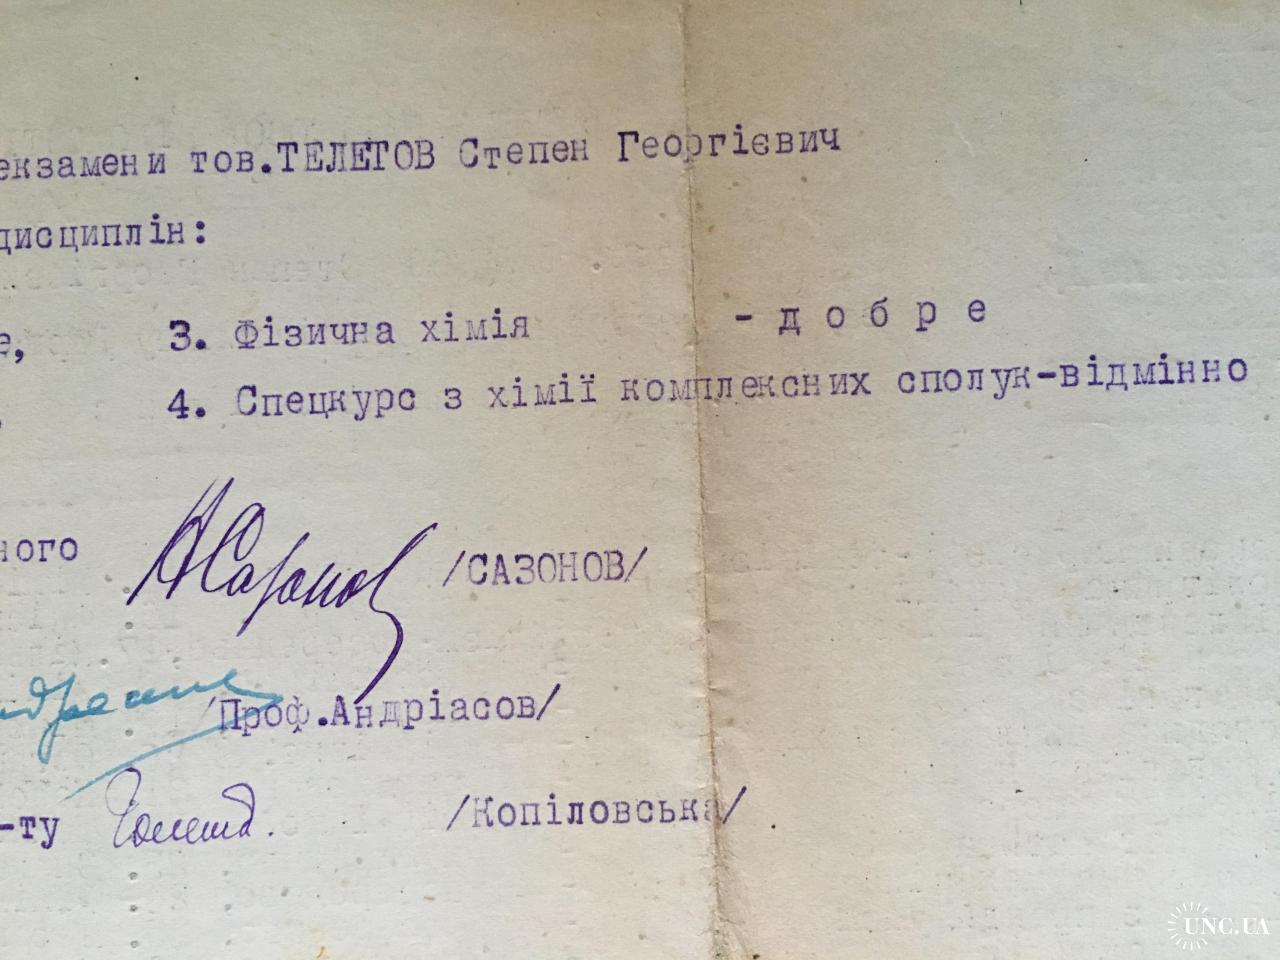 екзамени тов.ТЕЛЕТОВ Степен Георгієвич
дисциплін:
е, 3. Фізична хімія - д о б р е
, 4. Спецкурс з хімії комплексних сполук-відмінно
ного А Сазонов /САЗОНОВ/
/Проф.Андріасов/
-ту /Копіловська/
UNC.UA